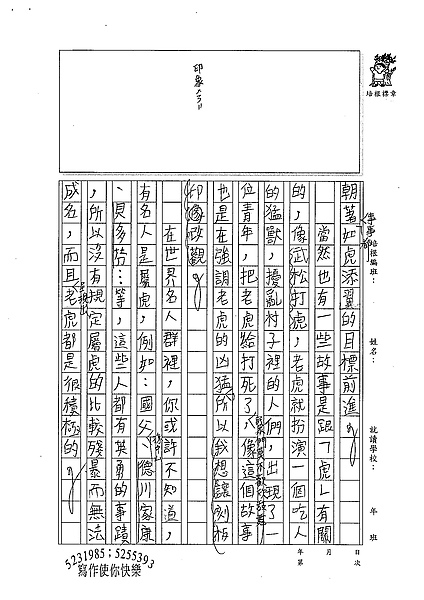 培根標章
印象
培根編班：
姓名：
就讀學校：
年 班
年 月 日
第 次
事事都
朝著如虎添翼的目標前進。
當然也有一些故事是跟「虎」有關
的，像武松打虎，老虎就扮演一個吃人
的猛獸，擾亂村子裡的人們，出現了一
位青年，把老虎給打死了，像這個故事
也是在強調老虎的凶猛，所以我想讓刻板
印象改觀。
在世界名人群裡，你或許不知道，
有名人是屬虎，例如：國父、德川家康
、貝多芬…等，這些人都有英勇的事蹟
，所以沒有規定屬虎的比較殘暴而無法
成名，而且老虎都是很積極的。
5231985；5255393
寫作使你快樂